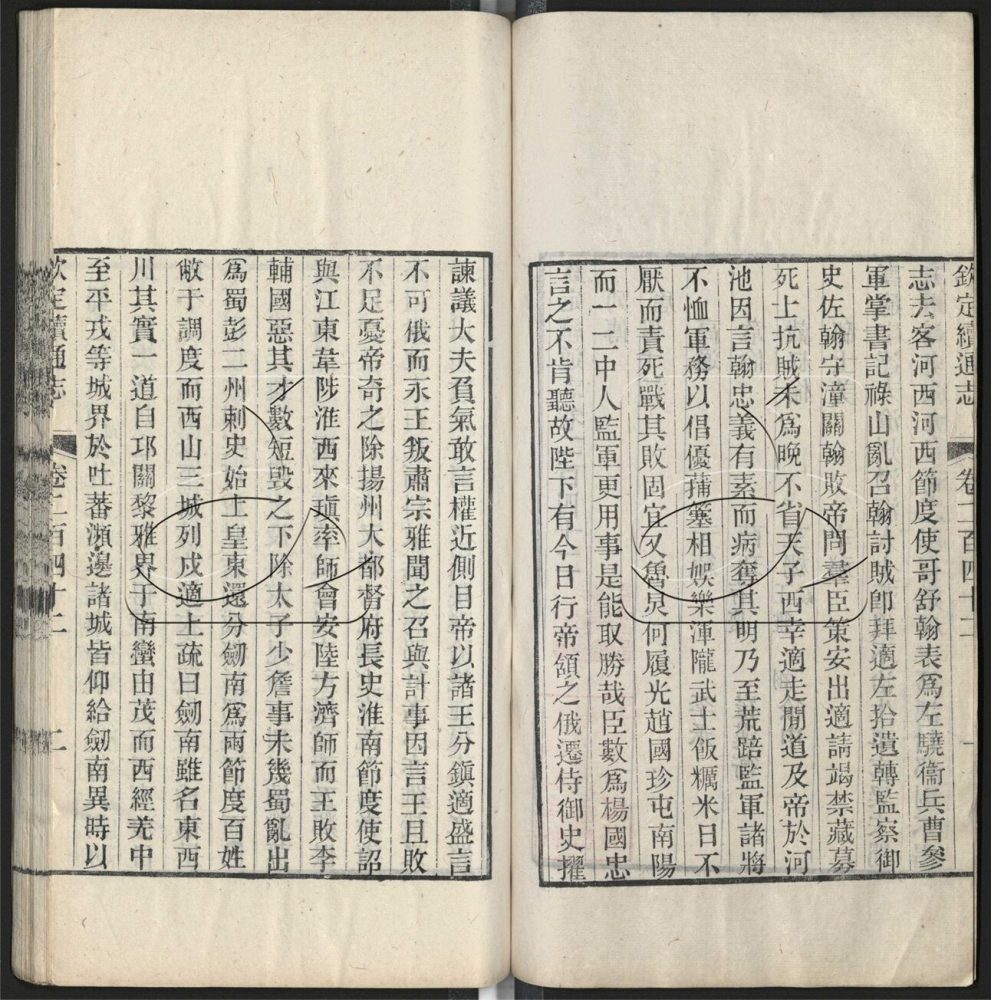 欽定續通志 卷二百四十二 一
志去客河西河西節度使哥舒翰表爲左驍衞兵曹參
軍掌書記祿山亂召翰討賊卽拜適左拾遺轉監察御
史佐翰守潼關翰敗帝問羣臣策安出適請竭禁藏募
死士抗賊未爲晚不省天子西幸適走閒道及帝於河
池因言翰忠義有素而病奪其明乃至荒踣監軍諸將
不恤軍務以倡優蒱簺相娛樂渾隴武士飯糲米日不
厭而責死戰其敗固宜又魯炅何履光趙國珍屯南陽
而一二中人監軍更用事是能取勝哉臣數爲楊國忠
言之不肯聽故陛下有今日行帝頷之俄遷侍御史擢
諫議大夫負氣敢言權近側目帝以諸王分鎭適盛言
不可俄而永王叛肅宗雅聞之召與計事因言王且敗
不足憂帝奇之除揚州大都督府長史淮南節度使詔
與江東韋陟淮西來瑱率師會安陸方濟師而王敗李
輔國惡其才數短毀之下除太子少詹事未幾蜀亂出
爲蜀彭二州刺史始上皇東還分劒南爲兩節度百姓
敝于調度而西山三城列戍適上疏曰劒南雖名東西
川其實一道自邛關黎雅界于南蠻由茂而西經羌中
至平戎等城界於吐蕃瀕邊諸城皆仰給劒南異時以
欽定續通志 卷二百四十二 二